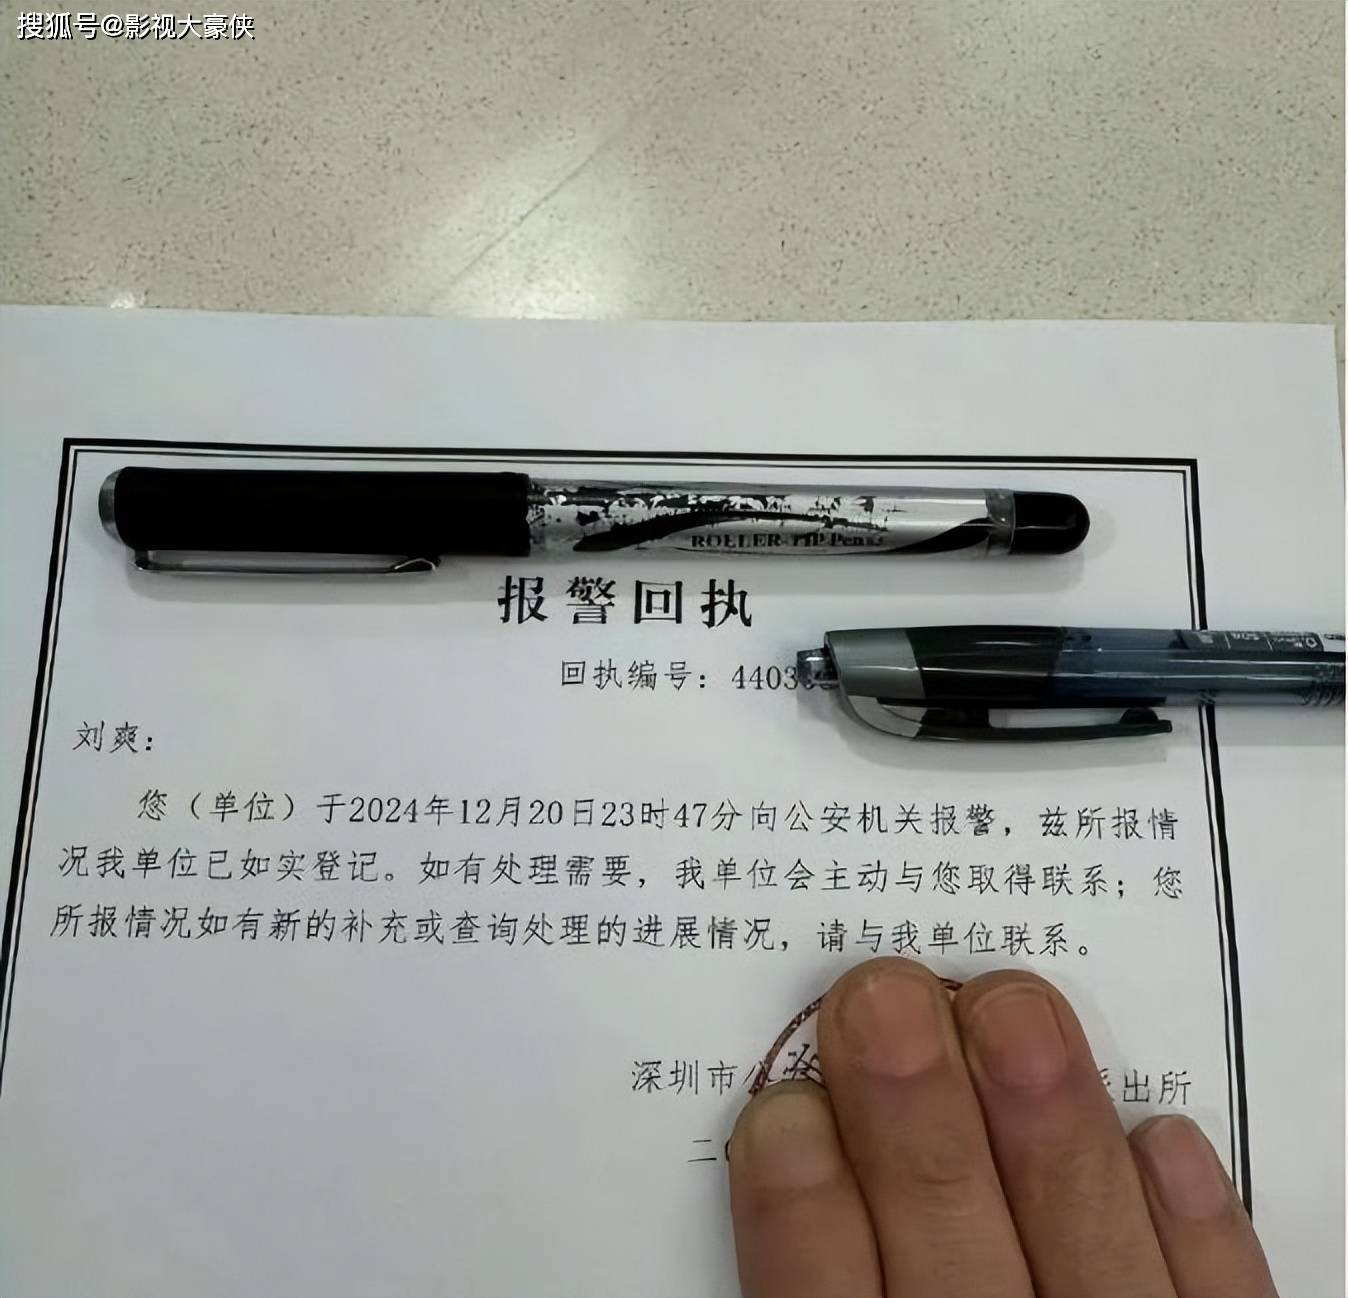 搜狐号@影视大豪侠
ROLLER-TIP Pen
报警回执
回执编号：4403
刘爽：
您（单位）于2024年12月20日23时47分向公安机关报警，兹所报情
况我单位已如实登记。如有处理需要，我单位会主动与您取得联系；您
所报情况如有新的补充或查询处理的进展情况，请与我单位联系。
深圳市公安 派出所
二〇